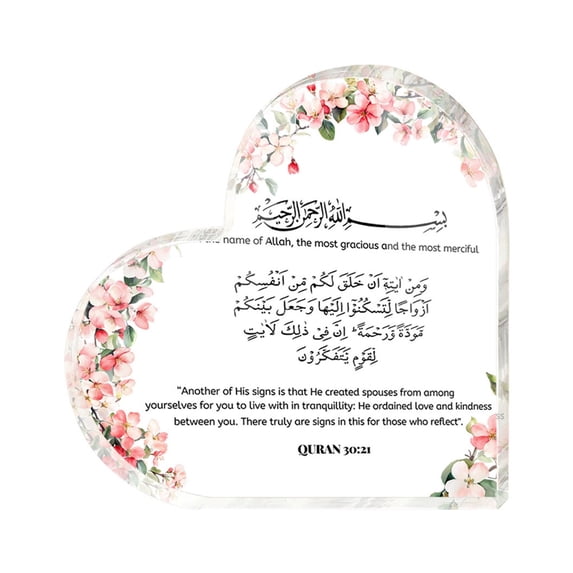 بسم الله الرحمن الرحيم
the name of Allah, the most gracious and the most merciful
وَمِنْ اٰيٰتِهٖٓ اَنْ خَلَقَ لَكُمْ مِّنْ اَنْفُسِكُمْ
اَزْوَاجًا لِّتَسْكُنُوْٓا اِلَيْهَا وَجَعَلَ بَيْنَكُمْ
مَّوَدَّةً وَّرَحْمَةً ۗ اِنَّ فِيْ ذٰلِكَ لَاٰيٰتٍ
لِّقَوْمٍ يَّتَفَكَّرُوْنَ
"Another of His signs is that He created spouses from among
yourselves for you to live with in tranquillity: He ordained love and kindness
between you. There truly are signs in this for those who reflect".
QURAN 30:21